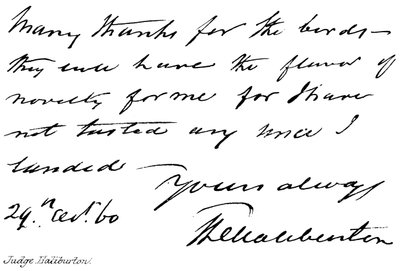 Many thanks for the birds—
they will have the flavor of
novelty for me for I have
not tasted any since I
landed
Yours always
29. '60
Haliburton
Judge Haliburton.